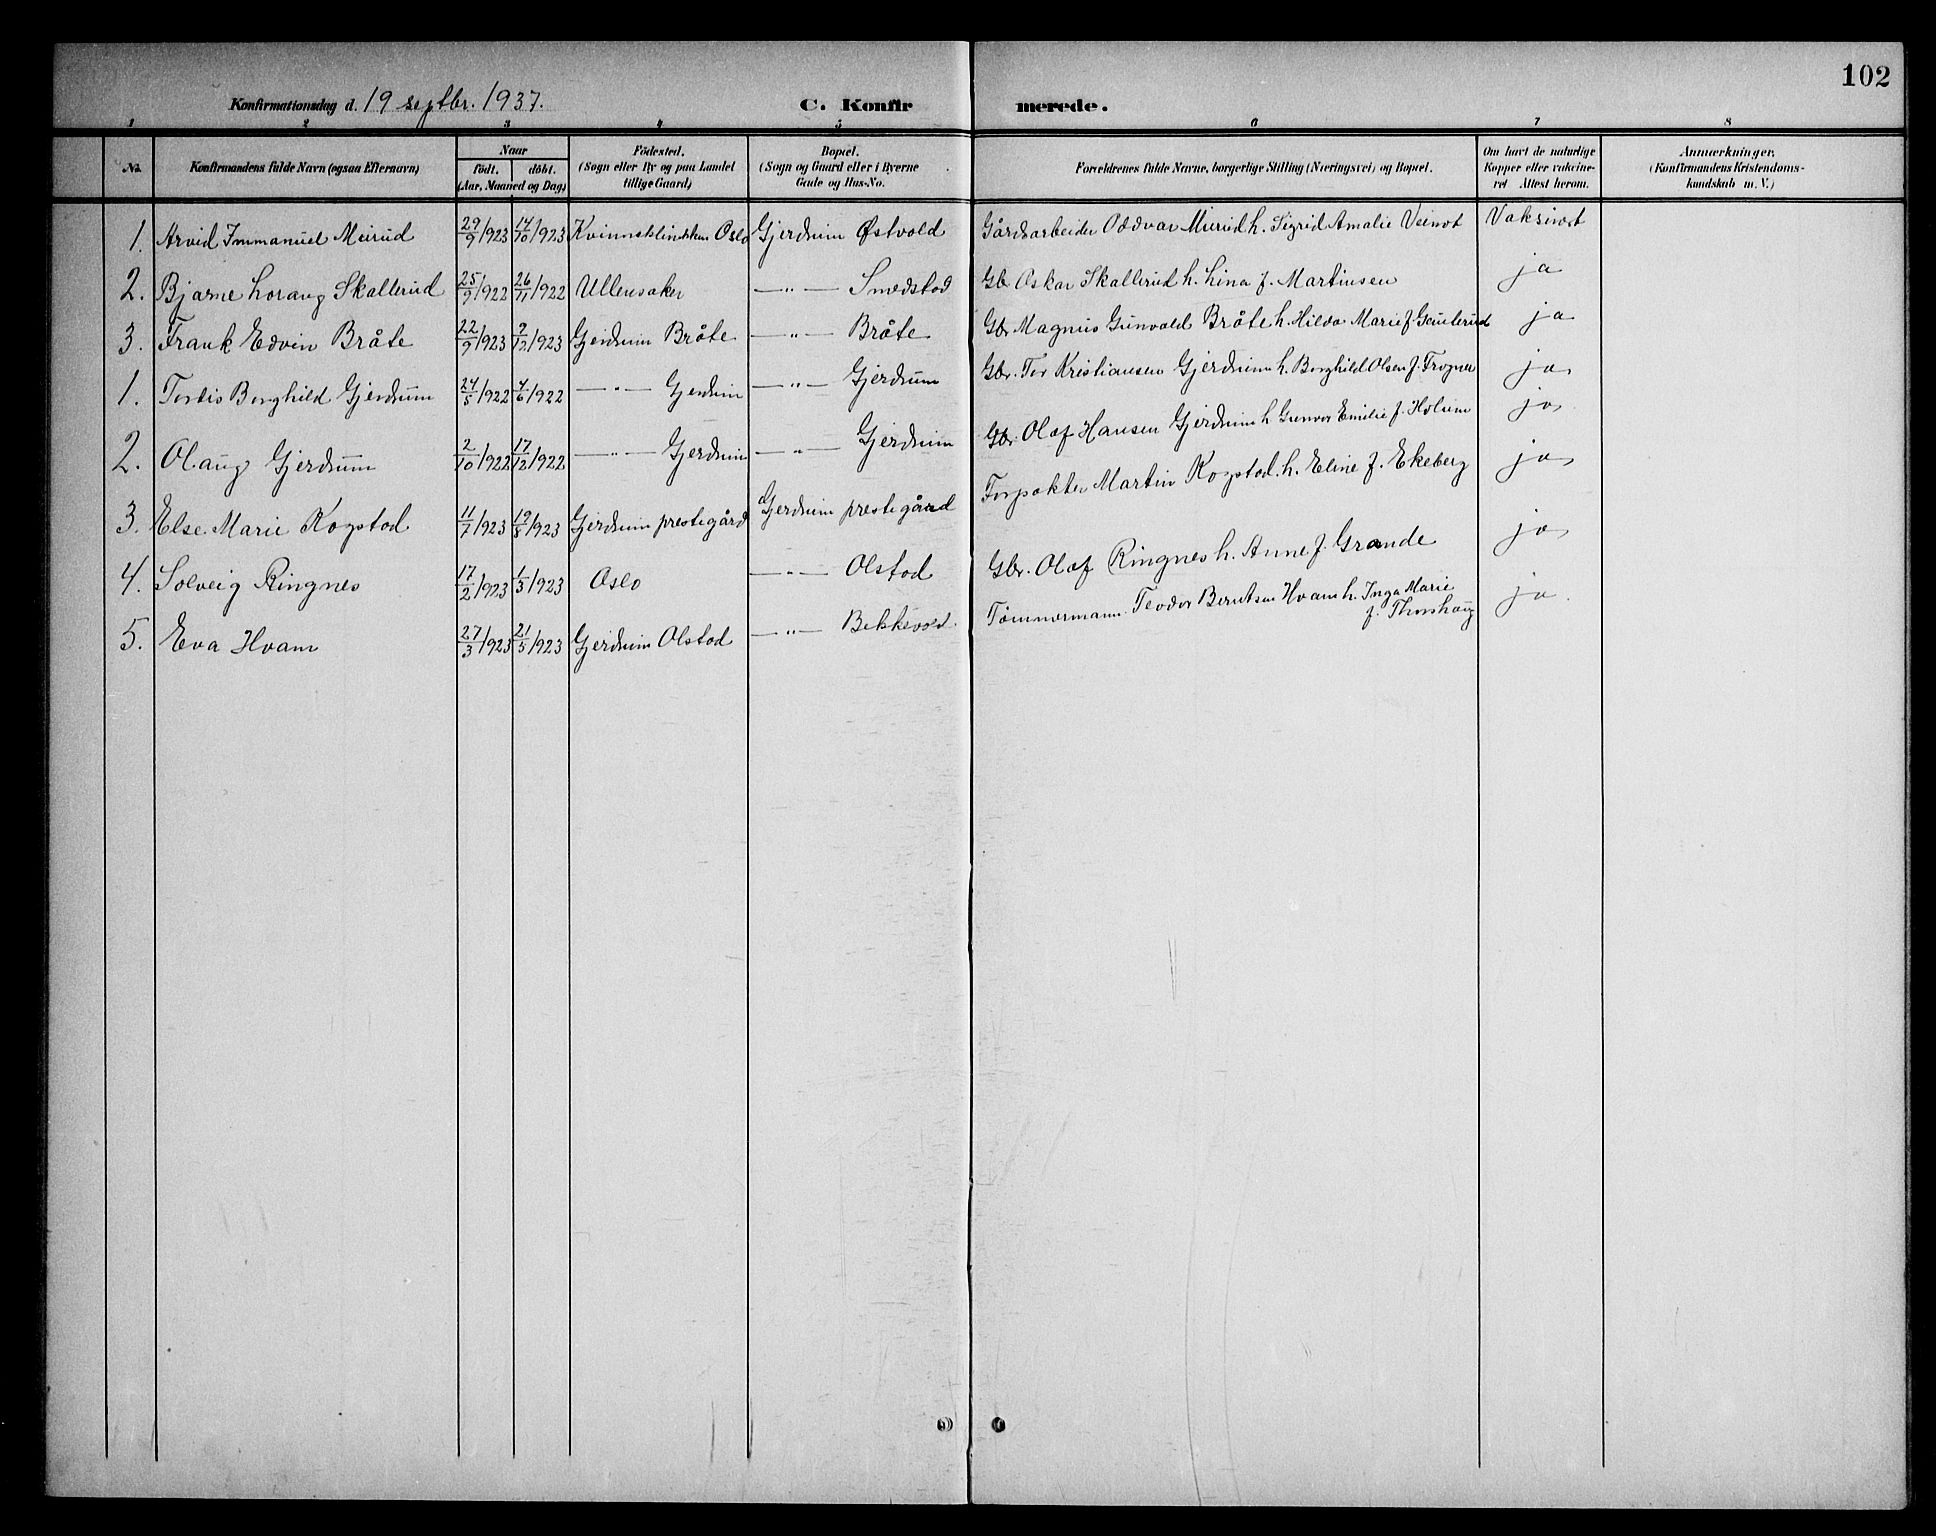 102
Konfirmationsdag d. 19 septbr. 1937.
C. Konfirmerede.
1 2 3 4 5 6 7 8
No.
Konfirmandens fulde Navn (ogsaa Efternavn)
Naar
födt. döbt.
(Aar, Maaned og Dag)
Födested.
(Sogn eller By og paa Landet
tillige Gaard)
Bopæl.
(Sogn og Gaard eller i Byerne
Gade og Hus-No.
Forældrenes fulde Navne, borgerlige Stilling (Næringsvei) og Bopæl.
Om havt de naturlige
Kopper eller vakcine-
ret Attest herom.
Anmærkninger.
(Konfirmandens Kristendoms-
kundskab m. V.)
1. Arvid Immanuel Meirud 29/9 1923 14/10 1923 Kvinneklinikken Oslo Gjerdrum Østvold Gårdsarbeider Oddvar Meirud h. Sigrid Amalie Vaksinert
2. Bjarne Lorang Skallerud 25/9 1922 26/11 1922 Ullensaker —"— Smedstad Gbr Oskar Skallerud h. Lina f. Martinsen ja
3. Frank Edvin Bråte 22/9 1923 9/12 1923 Gjerdrum Bråte —"— Bråte Gbr Magnus Gunvald Bråte h. Hilda Marie f. ja
1. Tordis Borghild Gjerdrum 24/5 1922 4/6 1922 —"— Gjerdrum —"— Gjerdrum Gbr. Tor Kristiansen Gjerdrum h. Borghild Olsen f. Frogner ja
2. Olaug Gjerdrum 2/10 1922 17/12 1922 —"— Gjerdrum —"— Gjerdrum Gbr. Olaf Hansen Gjerdrum h Gunvor Emilie f. Holum ja
3. Else Marie Kogstad 11/7 1923 19/8 1923 Gjerdrum prestegård Gjerdrum prestegård Forpakter Martin Kogstad h. Eline f. Ekeberg ja
4. Solveig Ringnes 17/2 1923 1/3 1923 Oslo —"— Olstad Gbr. Olaf Ringnes h. Anne f. Grande ja
5. Eva Hvam 27/3 1923 21/5 1923 Gjerdrum Olstad —"— Bekkevold. Tømmermann Teodor Berntsen Hvam h. Inga Marie ja.
f. Thorshaug